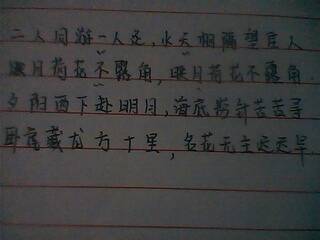 二人同游一人足，水天相隔望京人
映月荷花不露角，映月荷花不露角
夕阳西下赴明月，海底捞针苦苦寻
卧底藏龙方十里，名花无主迟迟早